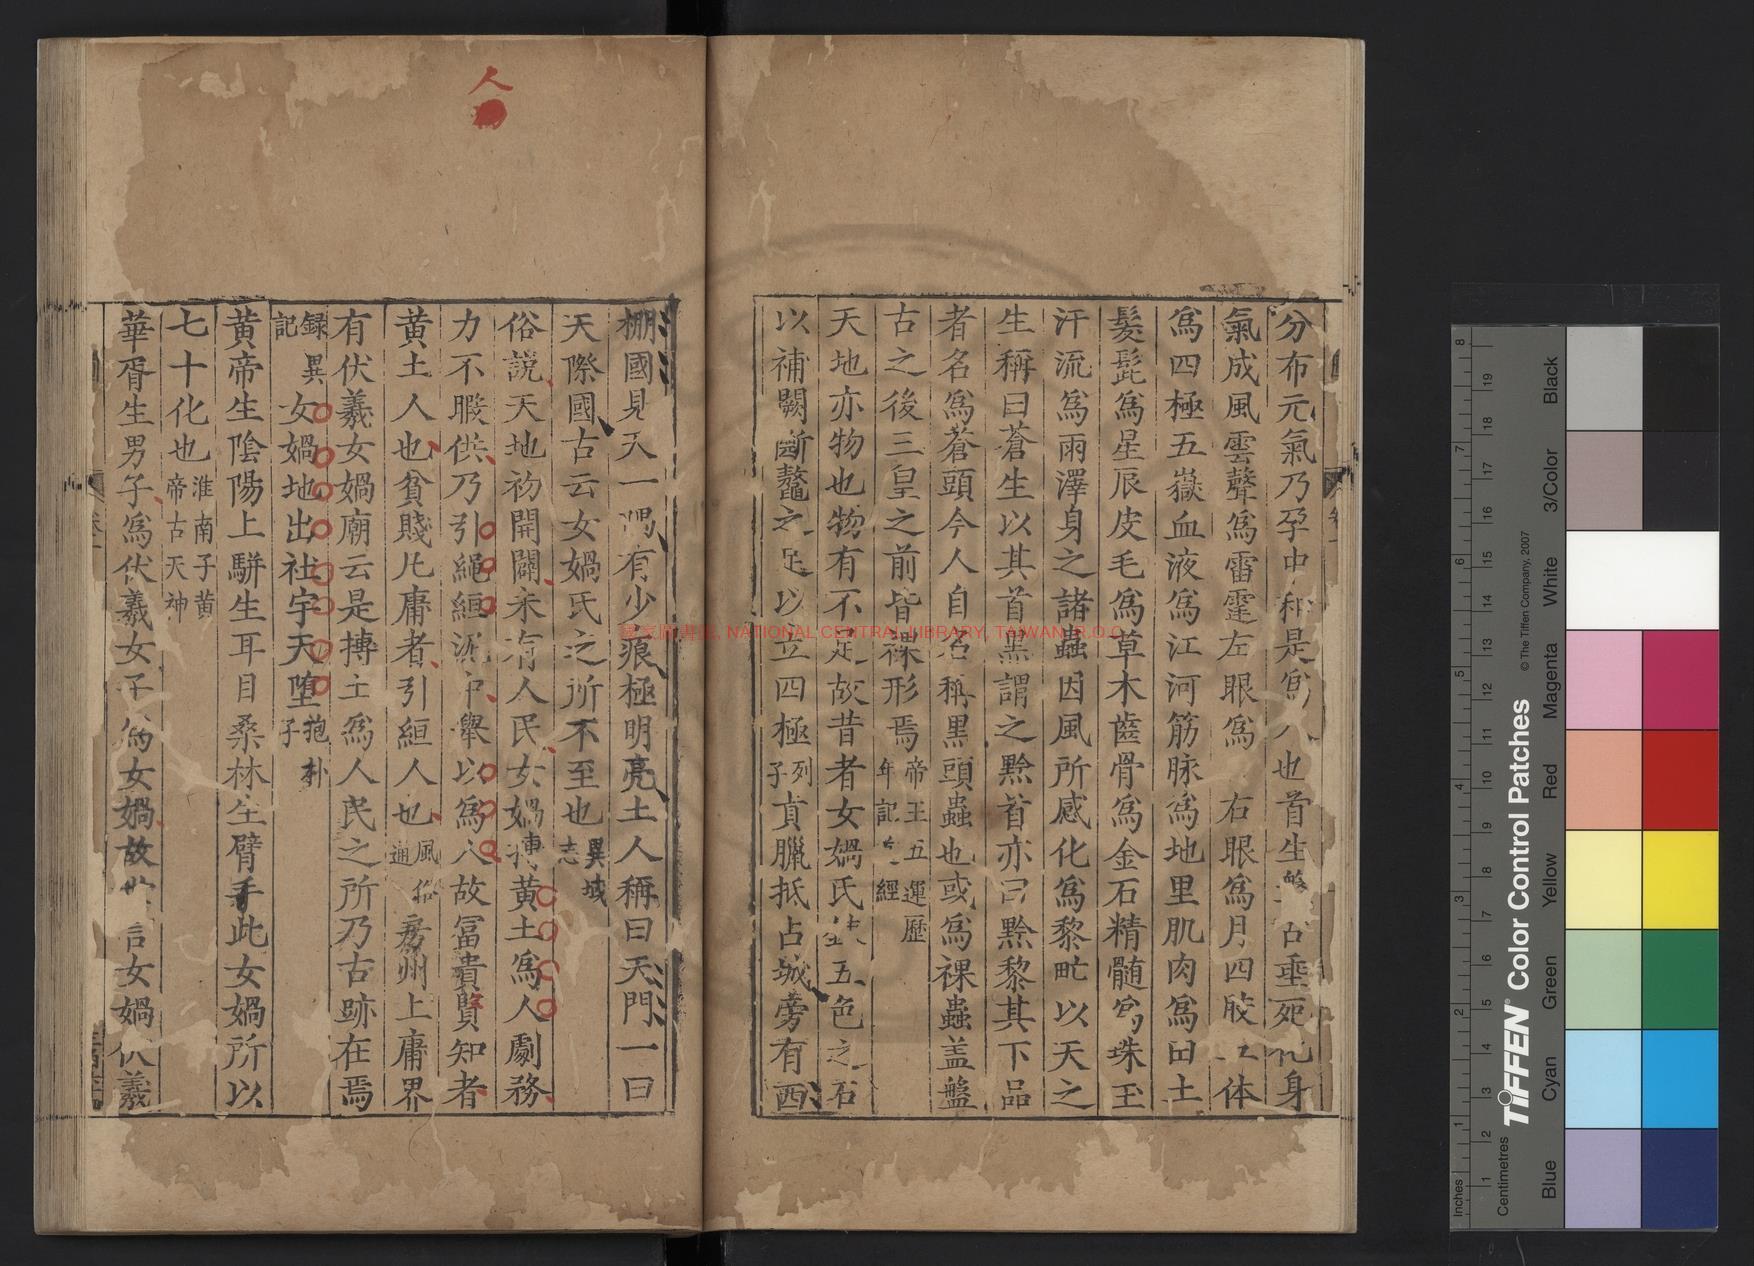 分布元氣乃孕中和是爲人也首生盤古垂死化身
氣成風雲聲爲雷霆左眼爲 右眼爲月四肢五体
爲四極五嶽血液爲江河筋脉爲地里肌肉爲田土
髮髭爲星辰皮毛爲草木齒骨爲金石精髄爲珠玉
汗流爲雨澤身之諸蟲因風所感化爲黎甿以天之
生稱曰蒼生以其首黑謂之黔首亦曰黔黎其下品
者名爲蒼頭今人自名稱黑頭蟲也或爲裸蟲盖盤
古之後三皇之前皆裸形焉帝王五運歷年記 經
天地亦物也物有不足故昔者女媧氏 五色之石
以補闕断鼇之足以立四極列子貢臘抵占城旁有西
棚國見天一隅有少痕極明亮土人稱曰天門一曰
天際國古云女媧氏之所不至也異域志
俗說天地初開闢未有人民女媧摶黃土爲人劇務
力不暇供乃引繩緪泥中舉以爲人故冨貴賢知者
黃土人也貧賤凡庸者引緪人也風俗通房州上庸界
有伏羲女媧廟云是摶土爲人民之所乃古跡在焉
録異記女媧地出社宇天墮抱朴子
黃帝生陰陽上駢生耳目桑林生臂手此女媧所以
七十化也淮南子黃帝古天神
華胥生男子爲伏羲女子爲女媧故世言女媧伏羲
人
國家圖書館, NATIONAL CENTRAL LIBRARY, TAIWAN (R.O.C.)
TIFFEN® Color Control Patches
© The Tiffen Company, 2007
Inches
Centimetres
Blue
Cyan
Green
Yellow
Red
Magenta
White
3/Color
Black